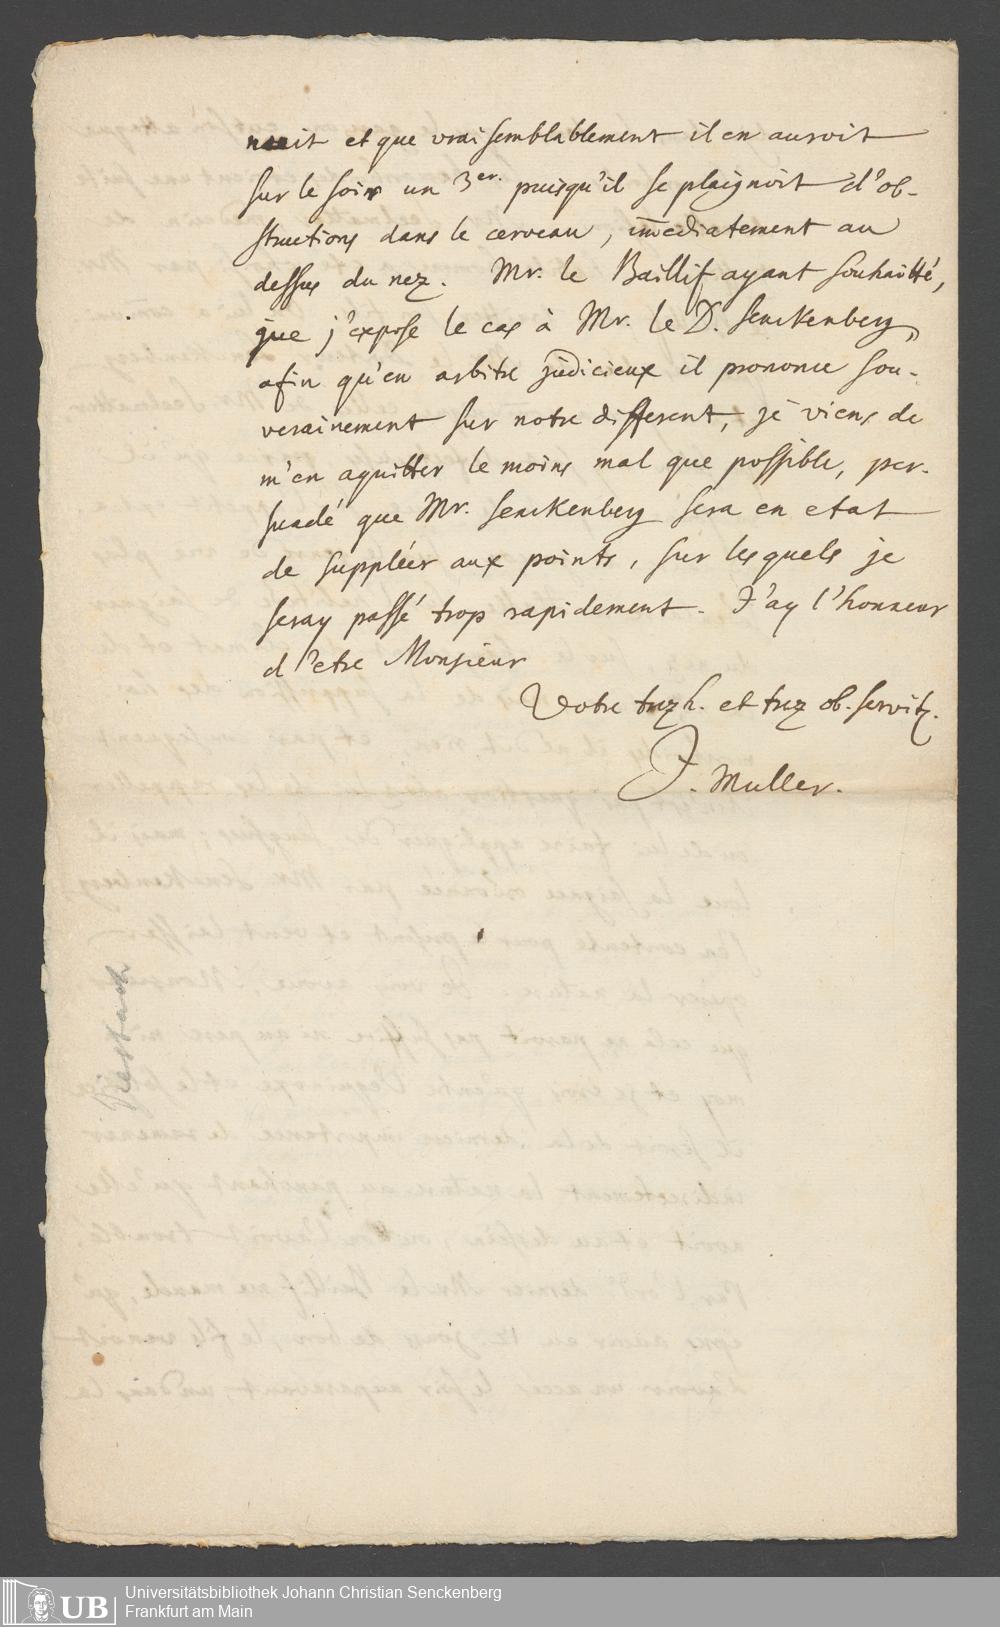 nuit et que vraisemblablement il en auroit
sur le soir un 3er. puisqu'il se plaignoit d'ob-
structions dans le cerveau, im̅ediatement au
dessus du nez. Mr. le Baillif ayant souhaitté,
que j'expose le cas à Mr. le D. Senckenberg,
afin qu'en arbitre judicieux il prononce sou-
verainement sur notre different, je viens de
m'en aquitter le moins mal que possible, per-
suadé que Mr. Senckenberg sera en etat
de suppléer aux points, sur lesquels je
seray passé trop rapidement. J'ay l'honneur
d'etre Monsieur
Votre trez h. et trez ob. servitr.
J. Muller.
Universitätsbibliothek Johann Christian Senckenberg
Frankfurt am Main
UB